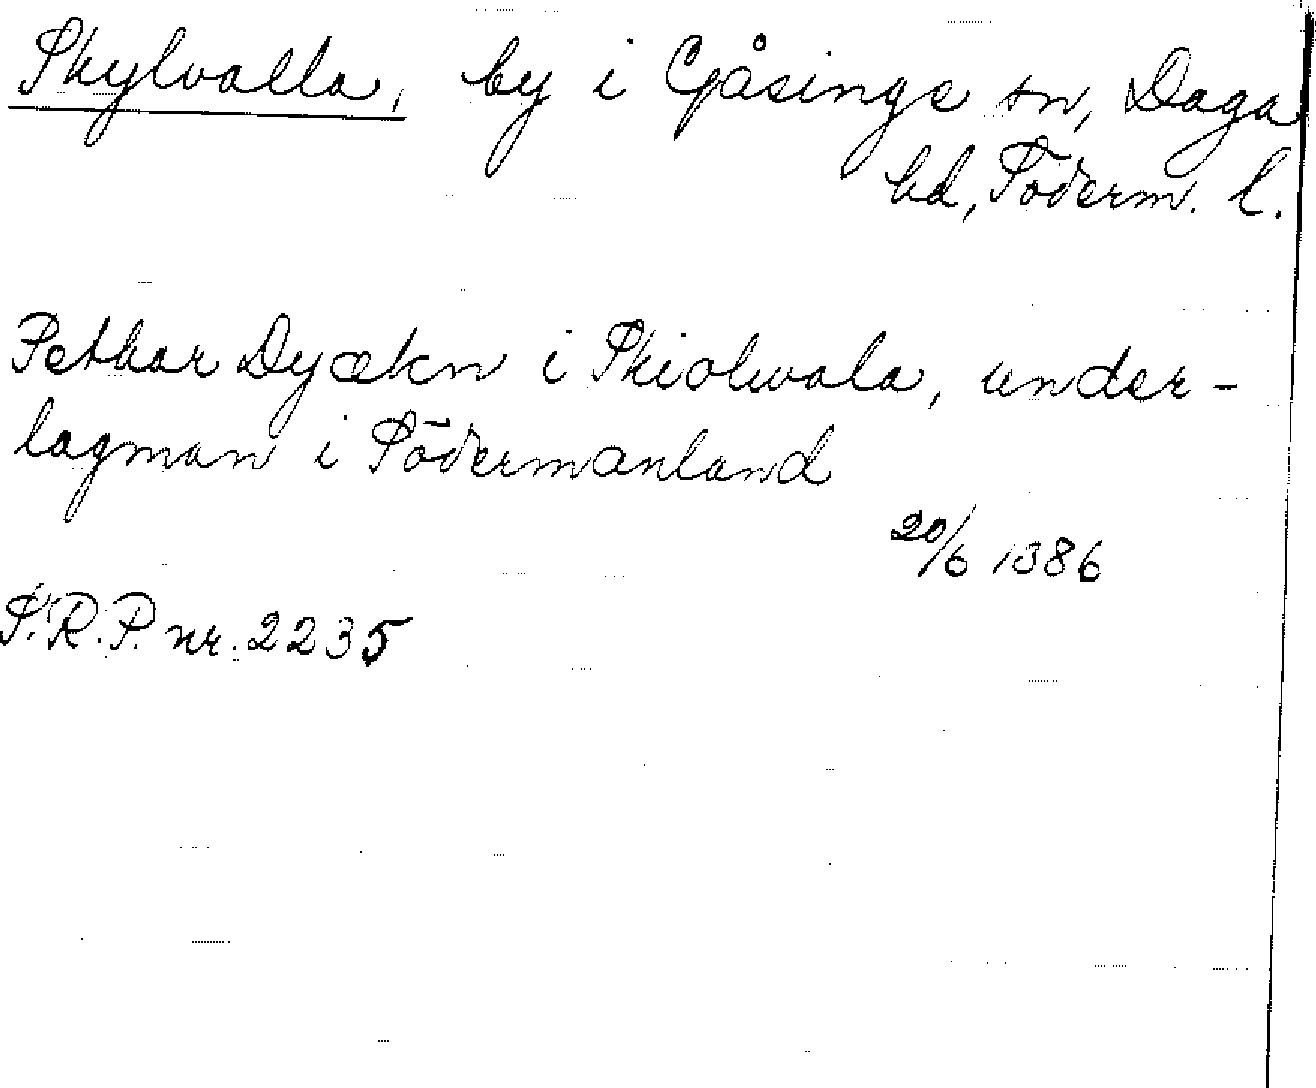 Skylvalla, by i Gåsinge sn, Daga
hd, Söderm. l.
Pethar Dyækn i Skiolwala, under-
lagman i Södermanland
20/6 1386
S.R.P. nr. 2235